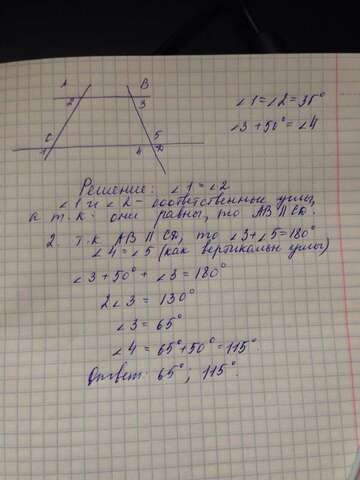 A B
2 3
∠1 = ∠2 = 35°
C 5
1 4 D
∠3 + 50° = ∠4
Решение: ∠1 = ∠2
∠1 и ∠2 - соответственные углы,
а т.к. они равны, то AB || CD.
2. т.к AB || CD, то ∠3 + ∠5 = 180°
∠4 = ∠5 (как вертикальн углы)
∠3 + 50° + ∠3 = 180°
2∠3 = 130°
∠3 = 65°
∠4 = 65° + 50° = 115°.
Ответ: 65°; 115°.